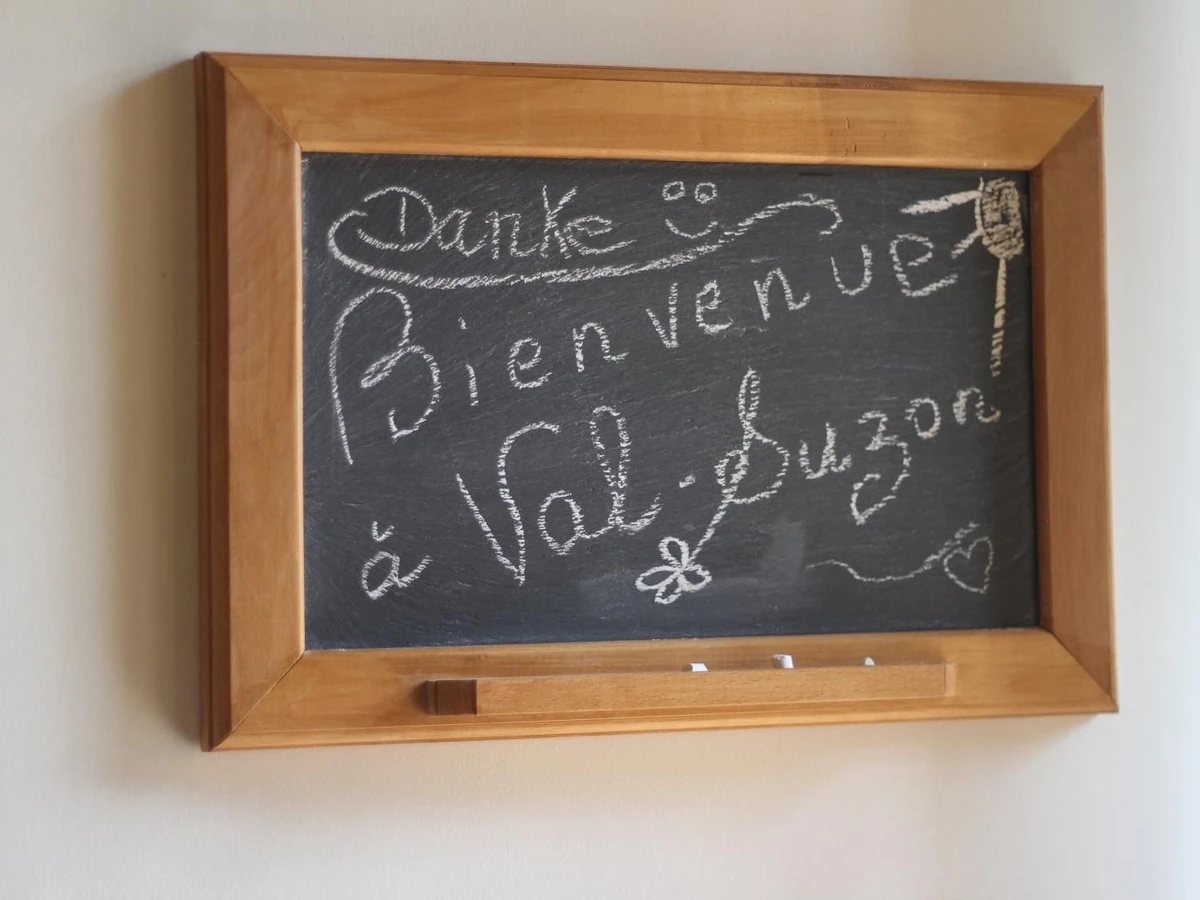 Danke
Bienvenue
à Val-Suzon